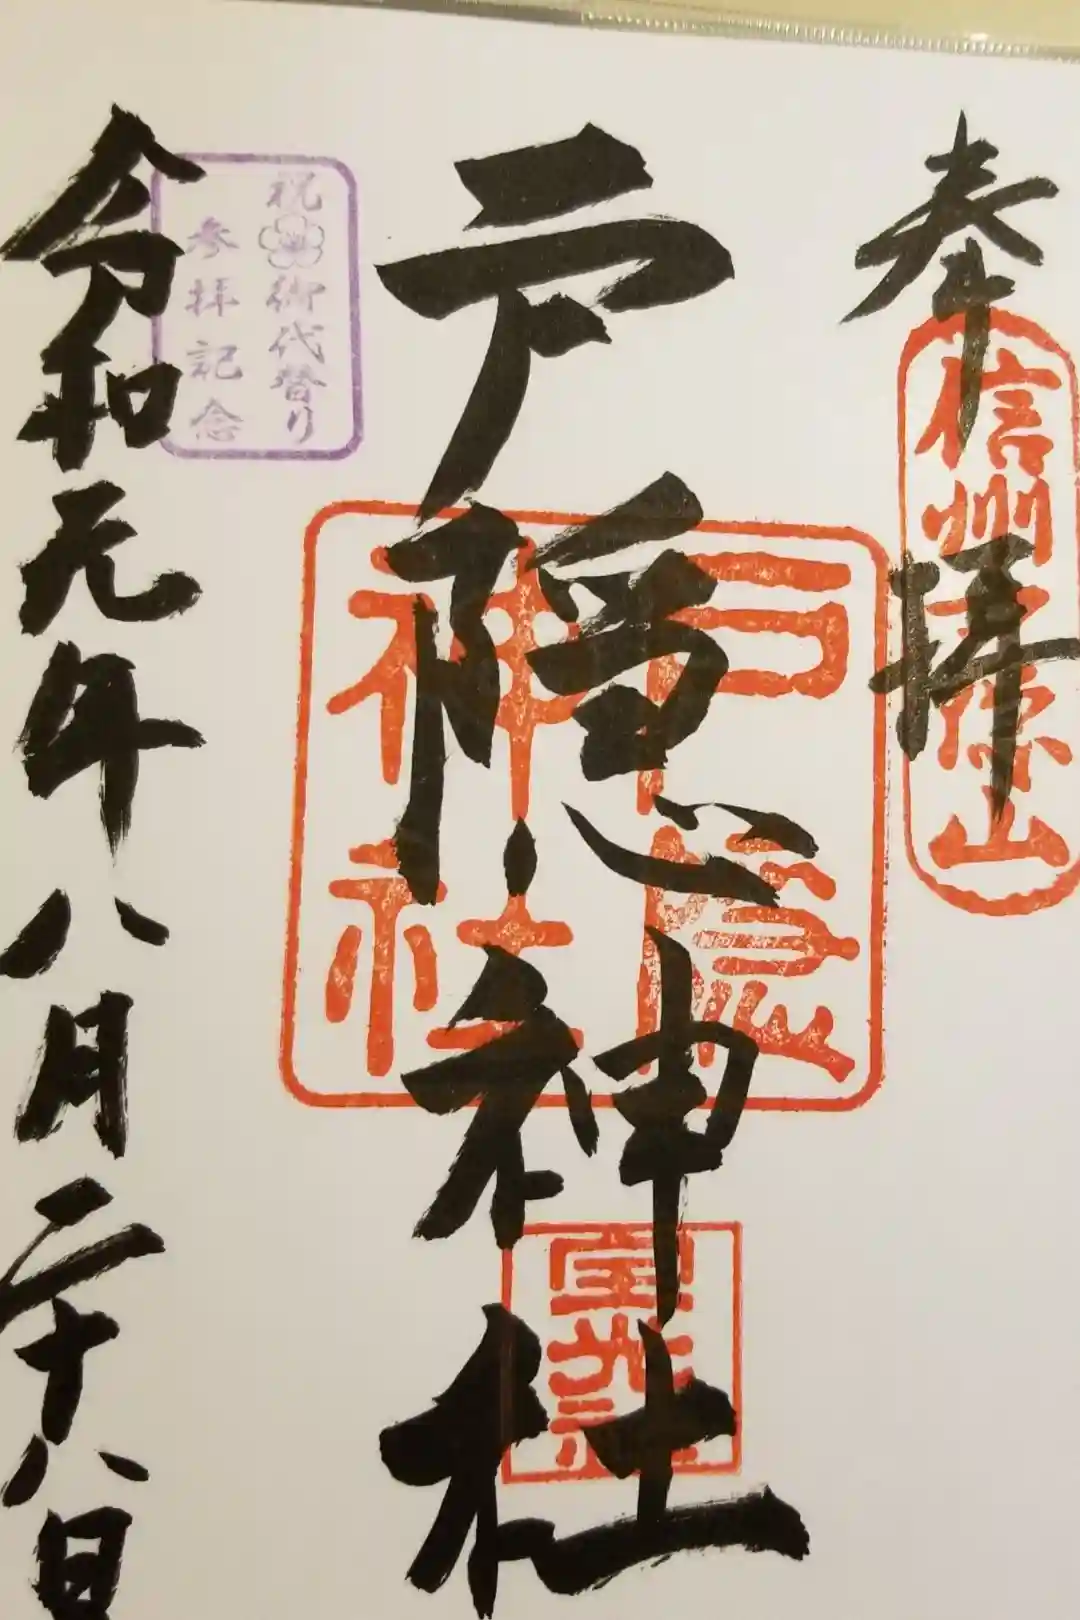 奉拝
信州戸隠山
戸隠神社
戸隠
神社
宝光社
祝御代替り
参拝記念
令和元年八月二十八日